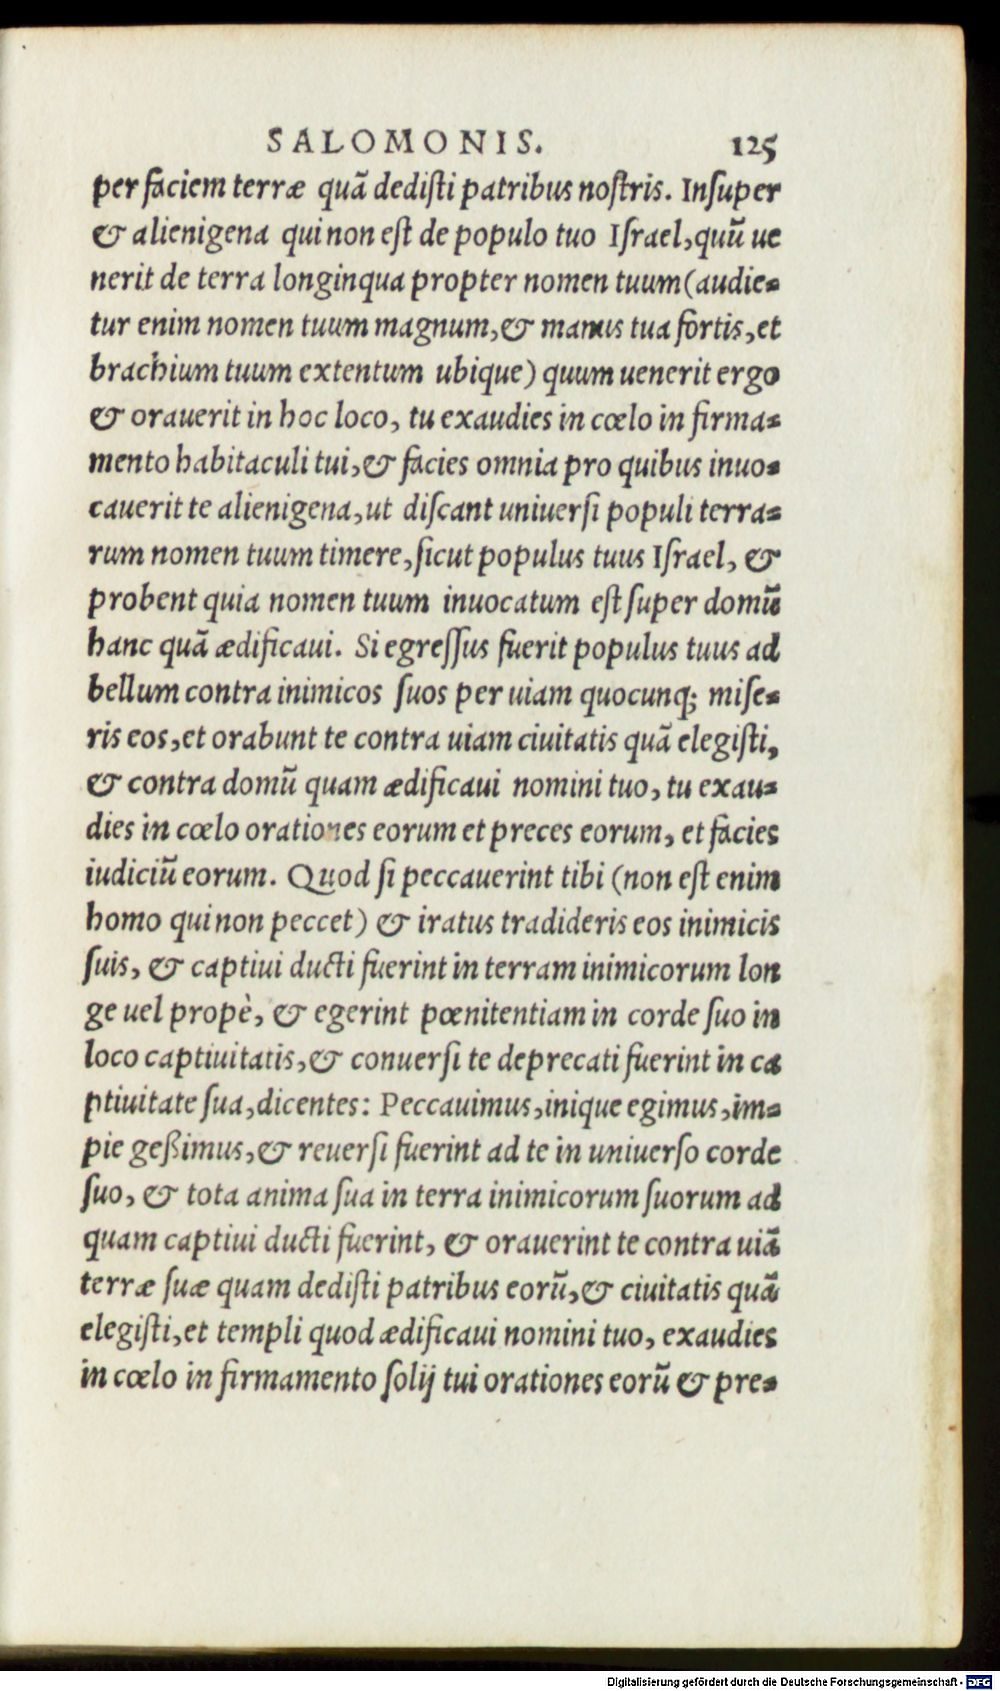 SALOMONIS. 125
per faciem terræ quã dediſti patribus noſtris. Inſuper
& alienigena qui non eſt de populo tuo Iſrael, quũ ue
nerit de terra longinqua propter nomen tuum (audie-
tur enim nomen tuum magnum, & manus tua fortis, et
brachium tuum extentum ubique) quum uenerit ergo
& orauerit in hoc loco, tu exaudies in cœlo in firma-
mento habitaculi tui, & facies omnia pro quibus inuo-
cauerit te alienigena, ut diſcant uniuerſi populi terra-
rum nomen tuum timere, ſicut populus tuus Iſrael, &
probent quia nomen tuum inuocatum eſt ſuper domũ
hanc quã ædificaui. Si egreſſus fuerit populus tuus ad
bellum contra inimicos ſuos per uiam quocunq; miſe-
ris eos, et orabunt te contra uiam ciuitatis quã elegiſti,
& contra domũ quam ædificaui nomini tuo, tu exau-
dies in cœlo orationes eorum et preces eorum, et facies
iudiciũ eorum. Quod ſi peccauerint tibi (non eſt enim
homo qui non peccet) & iratus tradideris eos inimicis
ſuis, & captiui ducti fuerint in terram inimicorum lon
ge uel propè, & egerint pœnitentiam in corde ſuo in
loco captiuitatis, & conuerſi te deprecati fuerint in ca
ptiuitate ſua, dicentes: Peccauimus, inique egimus, im-
pie geßimus, & reuerſi fuerint ad te in uniuerſo corde
ſuo, & tota anima ſua in terra inimicorum ſuorum ad
quam captiui ducti fuerint, & orauerint te contra uiã
terræ ſuæ quam dediſti patribus eorũ, & ciuitatis quã
elegiſti, et templi quod ædificaui nomini tuo, exaudies
in cœlo in firmamento ſolij tui orationes eorũ & pre-
Digitalisierung gefördert durch die Deutsche Forschungsgemeinschaft - DFG